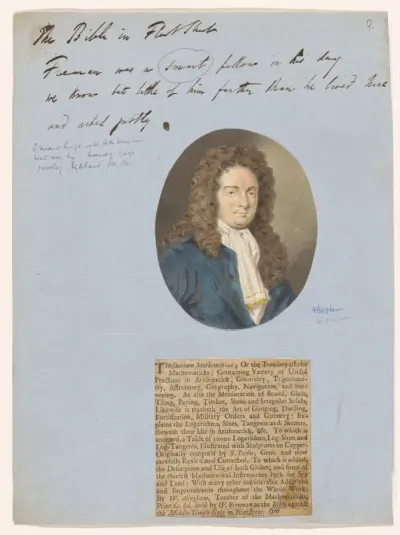 The Bible in Fleet Street
Freeman was a smart fellow in his day
we know but little of him further than he lived here
and acted justly.
THesaurium Mathematicæ; Or the Treasury of the
Mathematicks: Containing Variety of Useful
Practices in Arithmetick, Geometry, Trigonome-
try, Astronomy, Geography, Navigation, and Sur-
veying. As also the Mensuration of Board, Glass,
Tiling, Paving, Timber, Stone, and Irregular Solids,
Likewise it teacheth the Art of Gauging, Dialling,
Fortification, Military Orders and Gunnery: Ex-
plains the Logarithms, Sines, Tangents and Secants,
sheweth their Use in Arithmetick, &c. To which is
annexed, a Table of 10000 Logarithms, Log-Sines and
Log-Tangents, Illustrated with Sculptures on Copper.
Originally compos'd by J. Taylor, Gent. and now
carefully Revis'd and Corrected. To which is added,
the Description and Use of both Globes, and some of
the choicest Mathematical Instruments both for Sea
and Land: With many other considerable Additions
and Improvements throughout the whole Work.
By W. Allingham, Teacher of the Mathematicks,
Price 6s. Sold by W. Freeman at the Bible against
the Middle-Temple-Gate in Fleetstreet. 1710